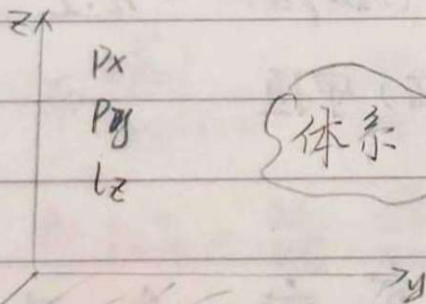 z
Px
Py
lz
体系
y